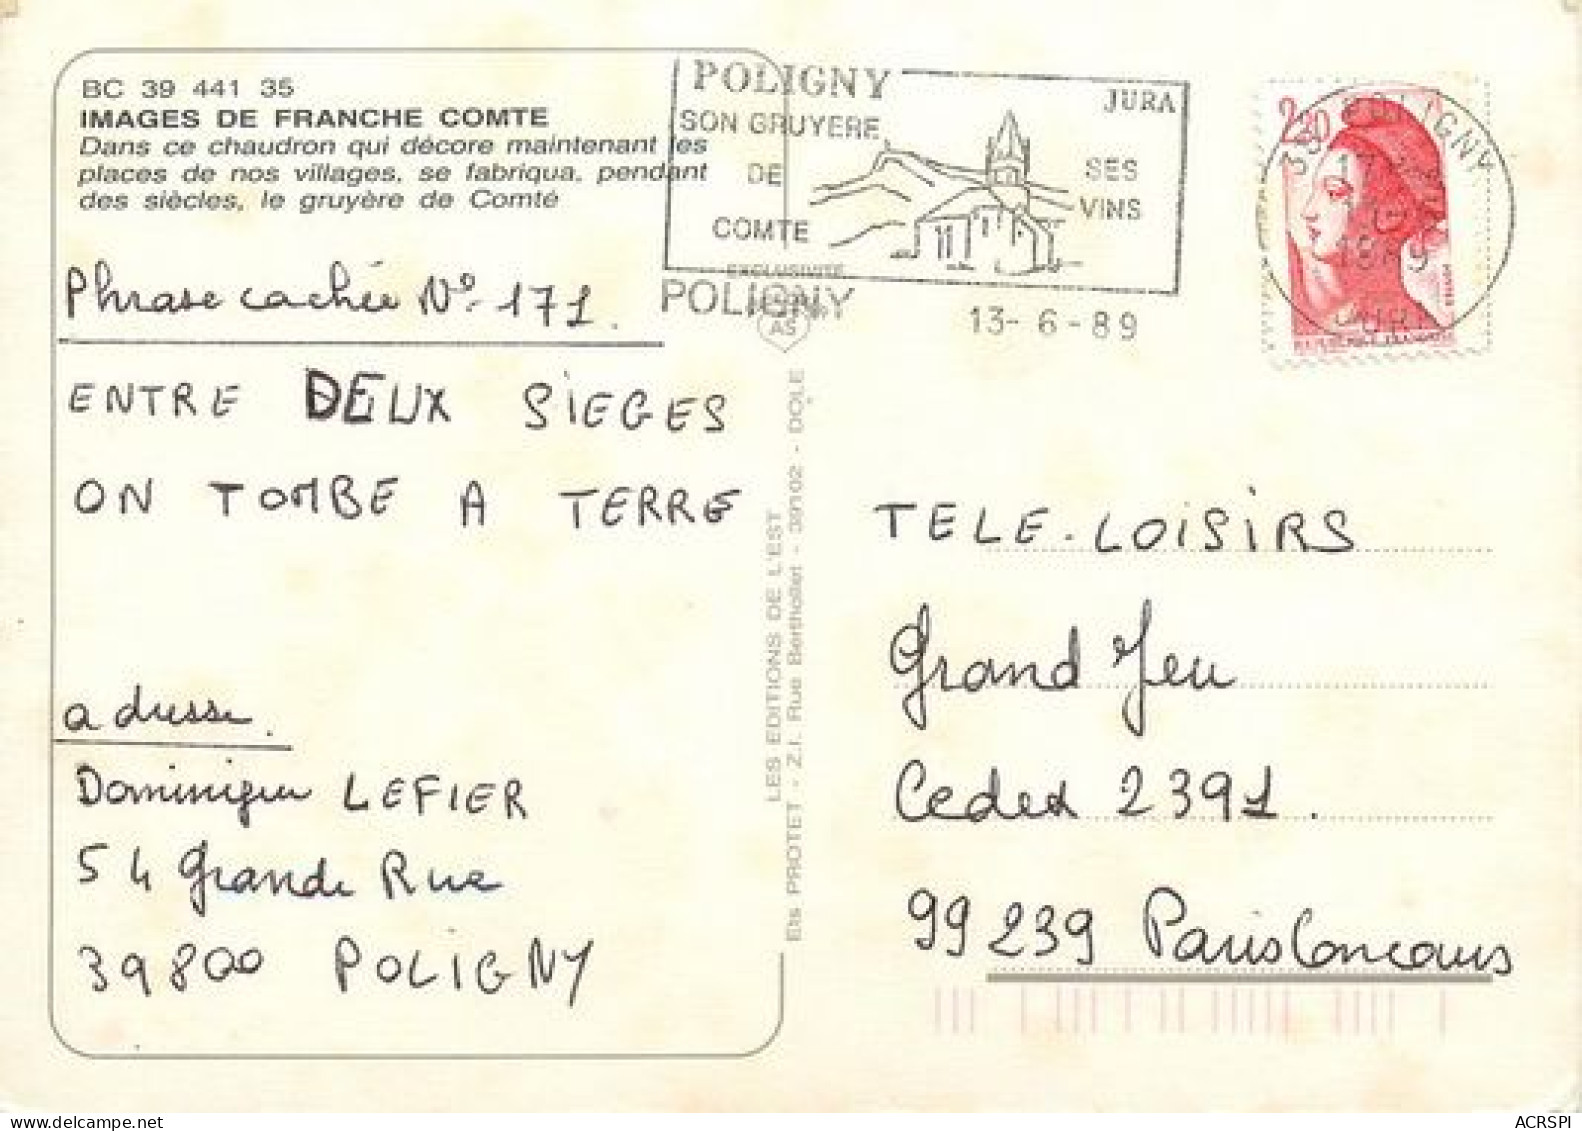 BC 39 441 35
IMAGES DE FRANCHE COMTE
Dans ce chaudron qui décore maintenant les
places de nos villages, se fabriqua, pendant
des siècles, le gruyère de Comté
Phrase cachée N° 171.
ENTRE DEUX SIEGES
ON TOMBE A TERRE
adresse.
Dominique LEFIER
54 Grande Rue
39800 POLIGNY
POLIGNY
SON GRUYERE
DE
COMTE
JURA
SES
VINS
EXCLUSIVITE
POLIGNY
AS
13-6-89
LES EDITIONS DE L'EST
Ets PROTET - Z.I. Rue Berthollet - 39102 - DOLE
2,20
39 POLIGNY
1989
JURA
REPUBLIQUE FRANCAISE
TELE-LOISIRS
Grand Jeu
Cedex 2391.
99239 Paris Concours
ACRSPI